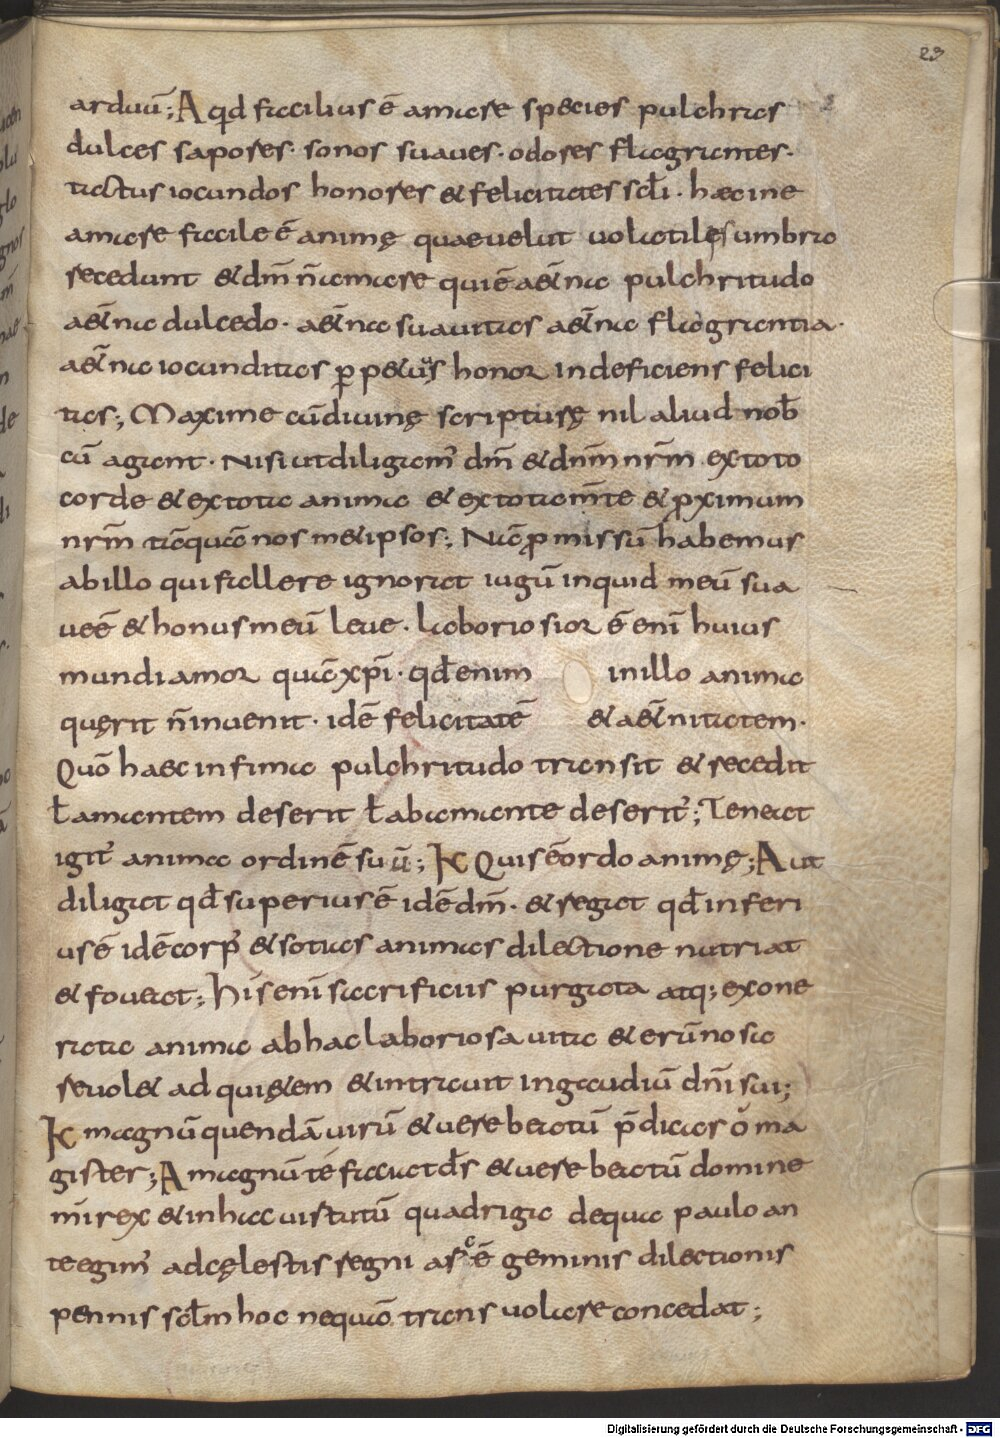 23
arduū; A qid facilius ē amare species pulchras
dulces sapores· sonos suaves· odores flagrantes·
tactus iocundos honores & felicitates scłi· haecine
amare facile ē animę quae velut volatilęs umbra
recedunt & dm̄ n̄ amare qui ē a&̄na pulchritudo
a&̄na dulcedo· a&̄na suavitas a&̄na flagrantia·
a&̄na iocunditas p̱p&uus honor indeficiens felici
tas; Maxime cū divinę scripturę nil aliud nob̄
cū agant· Nisi ut diligam̓ dm̄ & dnm̄ nrm̄ ex toto
corde & ex tota anima & ex tota m̄te & pximum
nrm̄ tāquā nos m&ipsos; Nā pmissū habemus
ab illo qui fallere ignorat iugū inquid meū sua
ve ē & honus meū leve· laboriosior ē enī huius
mundi amor quā xp̄i· qđ enim in illo anima
quęrit n̄ invenit· idē felicitatē & a&̄nitatem·
Quō haec infima pulchritudo transit & recedit
ł amantem deserit ł ab amante deserit̓; Teneat
igit̓ anima ordinē suū; K Quis ē ordo animę; A Ut
diligat qđ superius ē idē dm̄· & regat qđ inferi
us ē idē corp̓ & sotias animas dilectione nutriat
& foveat; His enī sacrificiis purgata atq; exone
rata anima ab hac laboriosa vita & erūnosa
revol& ad qui&em & intravit in gaudiū dn̄i sui;
K magnū quendā virū & vere beatū p̄dicas o ma
gister; A magnū te faciat d̄s & vere beatū domine
mī rex & in hac virtutū quadriga de qua paulo an
te egim̓ ad cęlestis regni arcē geminis dilectionis
pennis scłm hoc nequā transvolare concedat;
Digitalisierung gefördert durch die Deutsche Forschungsgemeinschaft - DFG